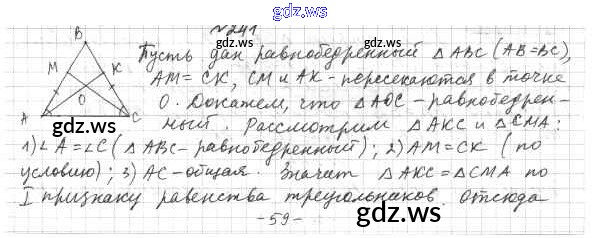 gdz.ws
№241
B
Пусть дан равнобедренный △ABC (AB=BC),
M K
AM=CK, CM и AK - пересекаются в точке
O
O. Докажем, что △AOC - равнобедрен-
A C
gdz.ws
gdz.ws
ный. Рассмотрим △AKC и △CMA:
1) ∠A=∠C (△ABC- равнобедренный); 2) AM=CK (по
условию); 3) AC-общая. Значит △AKC=△CMA по
I признаку равенства треугольников. Отсюда
-59-
gdz.ws
gdz.ws